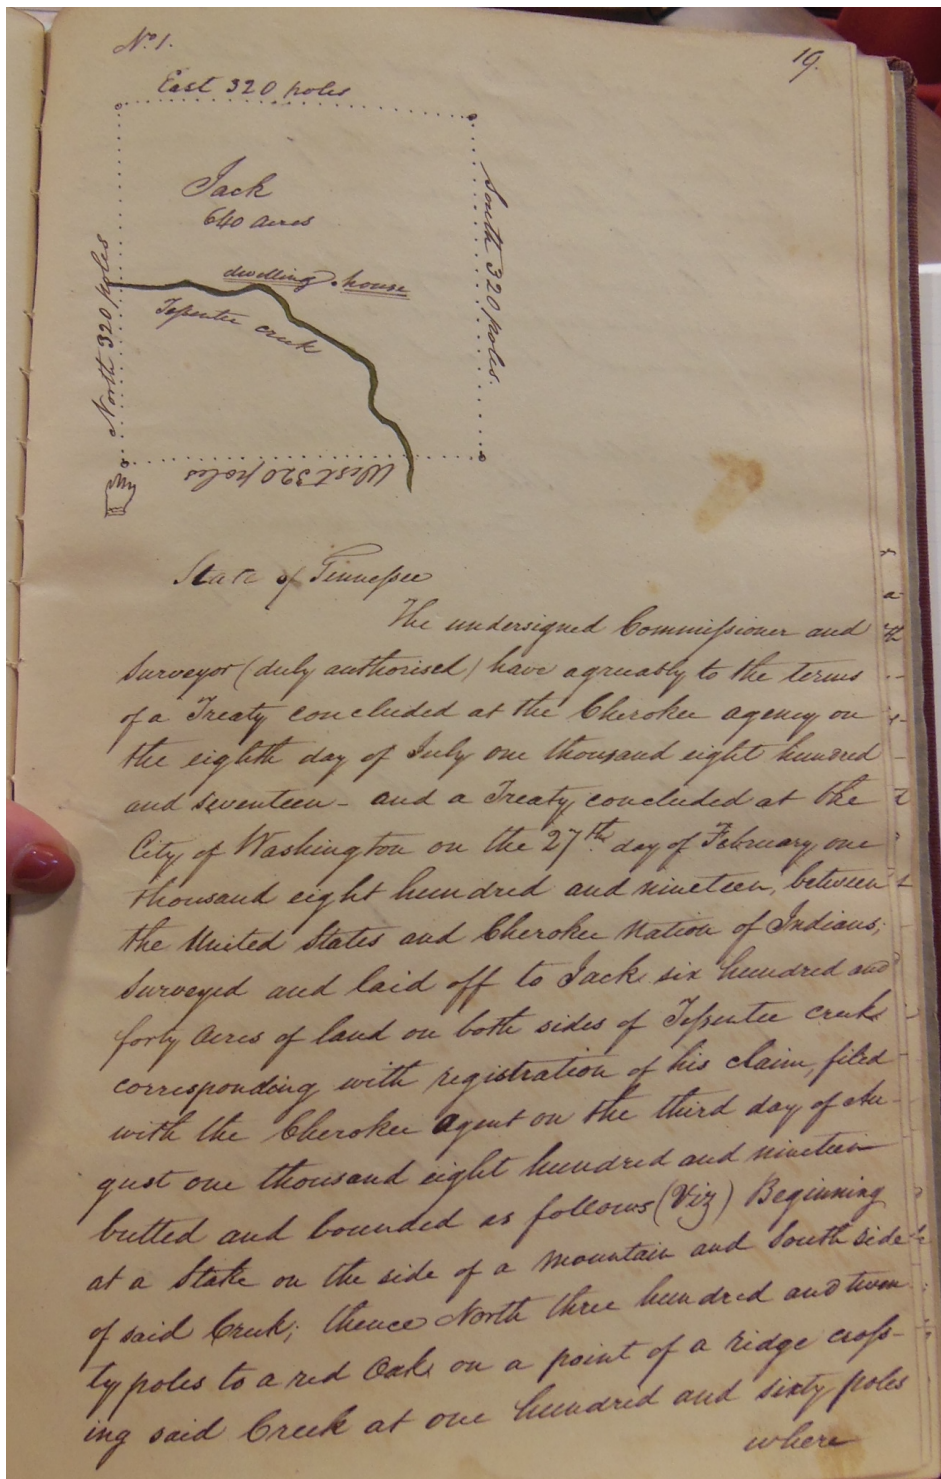 No. 1.
19.
East 320 poles
Jack
640 acres
South 320 poles.
dwelling house
North 320 poles
creek
West 320 poles
State of Tennessee
The undersigned Commissioner and
Surveyor (duly authorised) have agreuably to the terms
of a Treaty concluded at the Cherokee agency on
the eighth day of July one thousand eight hundred
and seventeen - and a Treaty concluded at the
City of Washington on the 27th. day of February one
thousand eight hundred and nineteen, between
the United States and Cherokee Nation of Indians;
Surveyed and laid off to Jack six hundred and
forty acres of land on both sides of creek
corresponding with registration of his claim, filed
with the Cherokee Agent on the third day of Au-
gust one thousand eight hundred and nineteen
butted and bounded as follows (Viz) Beginning
at a Stake on the side of a mountain and South side
of said Creek; thence North three hundred and twen
ty poles to a red Oak on a point of a ridge cross-
ing said Creek at one hundred and sixty poles
where